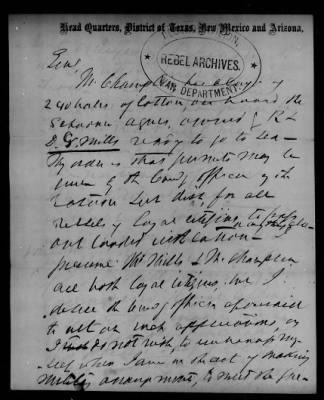 Head Quarters, District of Texas, New Mexico and Arizona.
REBEL ARCHIVES,
WAR DEPARTMENT
Genl
Mr Champion has a cargo of
240 bales of Cotton, on board the
Schooner Agnes, owned by R &
D. G. Mills ready to go to sea
My order is that permits may be
given by the Comdg officer of the
for all
vessels of loyal citizens to pass
out loaded with Cotton
presume Mr Mills & Mr Champion
are both loyal citizens, but I
desire the Comdg officer
to act on such applications, as
I do not wish to
self when I am in the act of making
military arrangements, to meet the